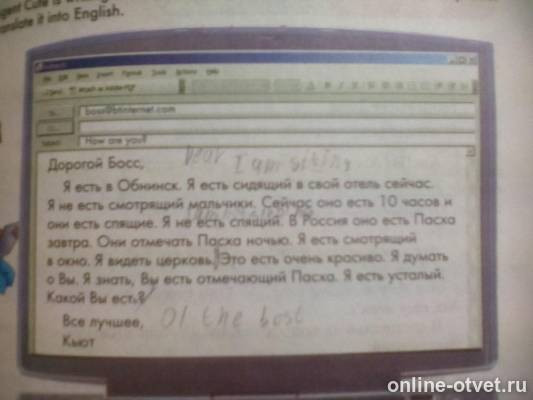 gent Cute is
translate it into English.
boss@btinternet.com
How are you?
Дорогой Босс,
Dear I am siting
Я есть в Обнинск. Я есть сидящий в свой отель сейчас.
Я не есть смотрящий мальчики. Сейчас оно есть 10 часов и
они есть спящие. Я не есть спящий. В Россия оно есть Пасха
завтра. Они отмечать Пасха ночью. Я есть смотрящий
в окно. Я видеть церковь. Это есть очень красиво. Я думать
о Вы. Я знать, Вы есть отмечающий Пасха. Я есть усталый.
Какой Вы есть?
Все лучшее, Ol the best
Кьют
online-otvet.ru